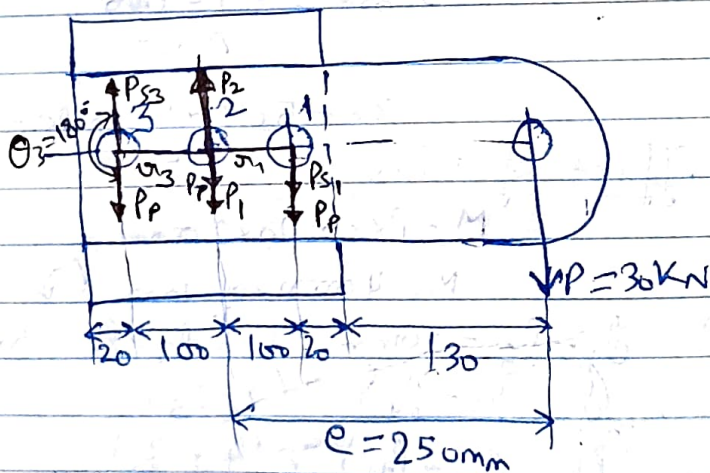 Ps3 P2
θ3=180° 3 2 1
r3 r1
Pp Pp P1 Ps1 Pp
P=30KN
20 100 100 20 130
e=250mm